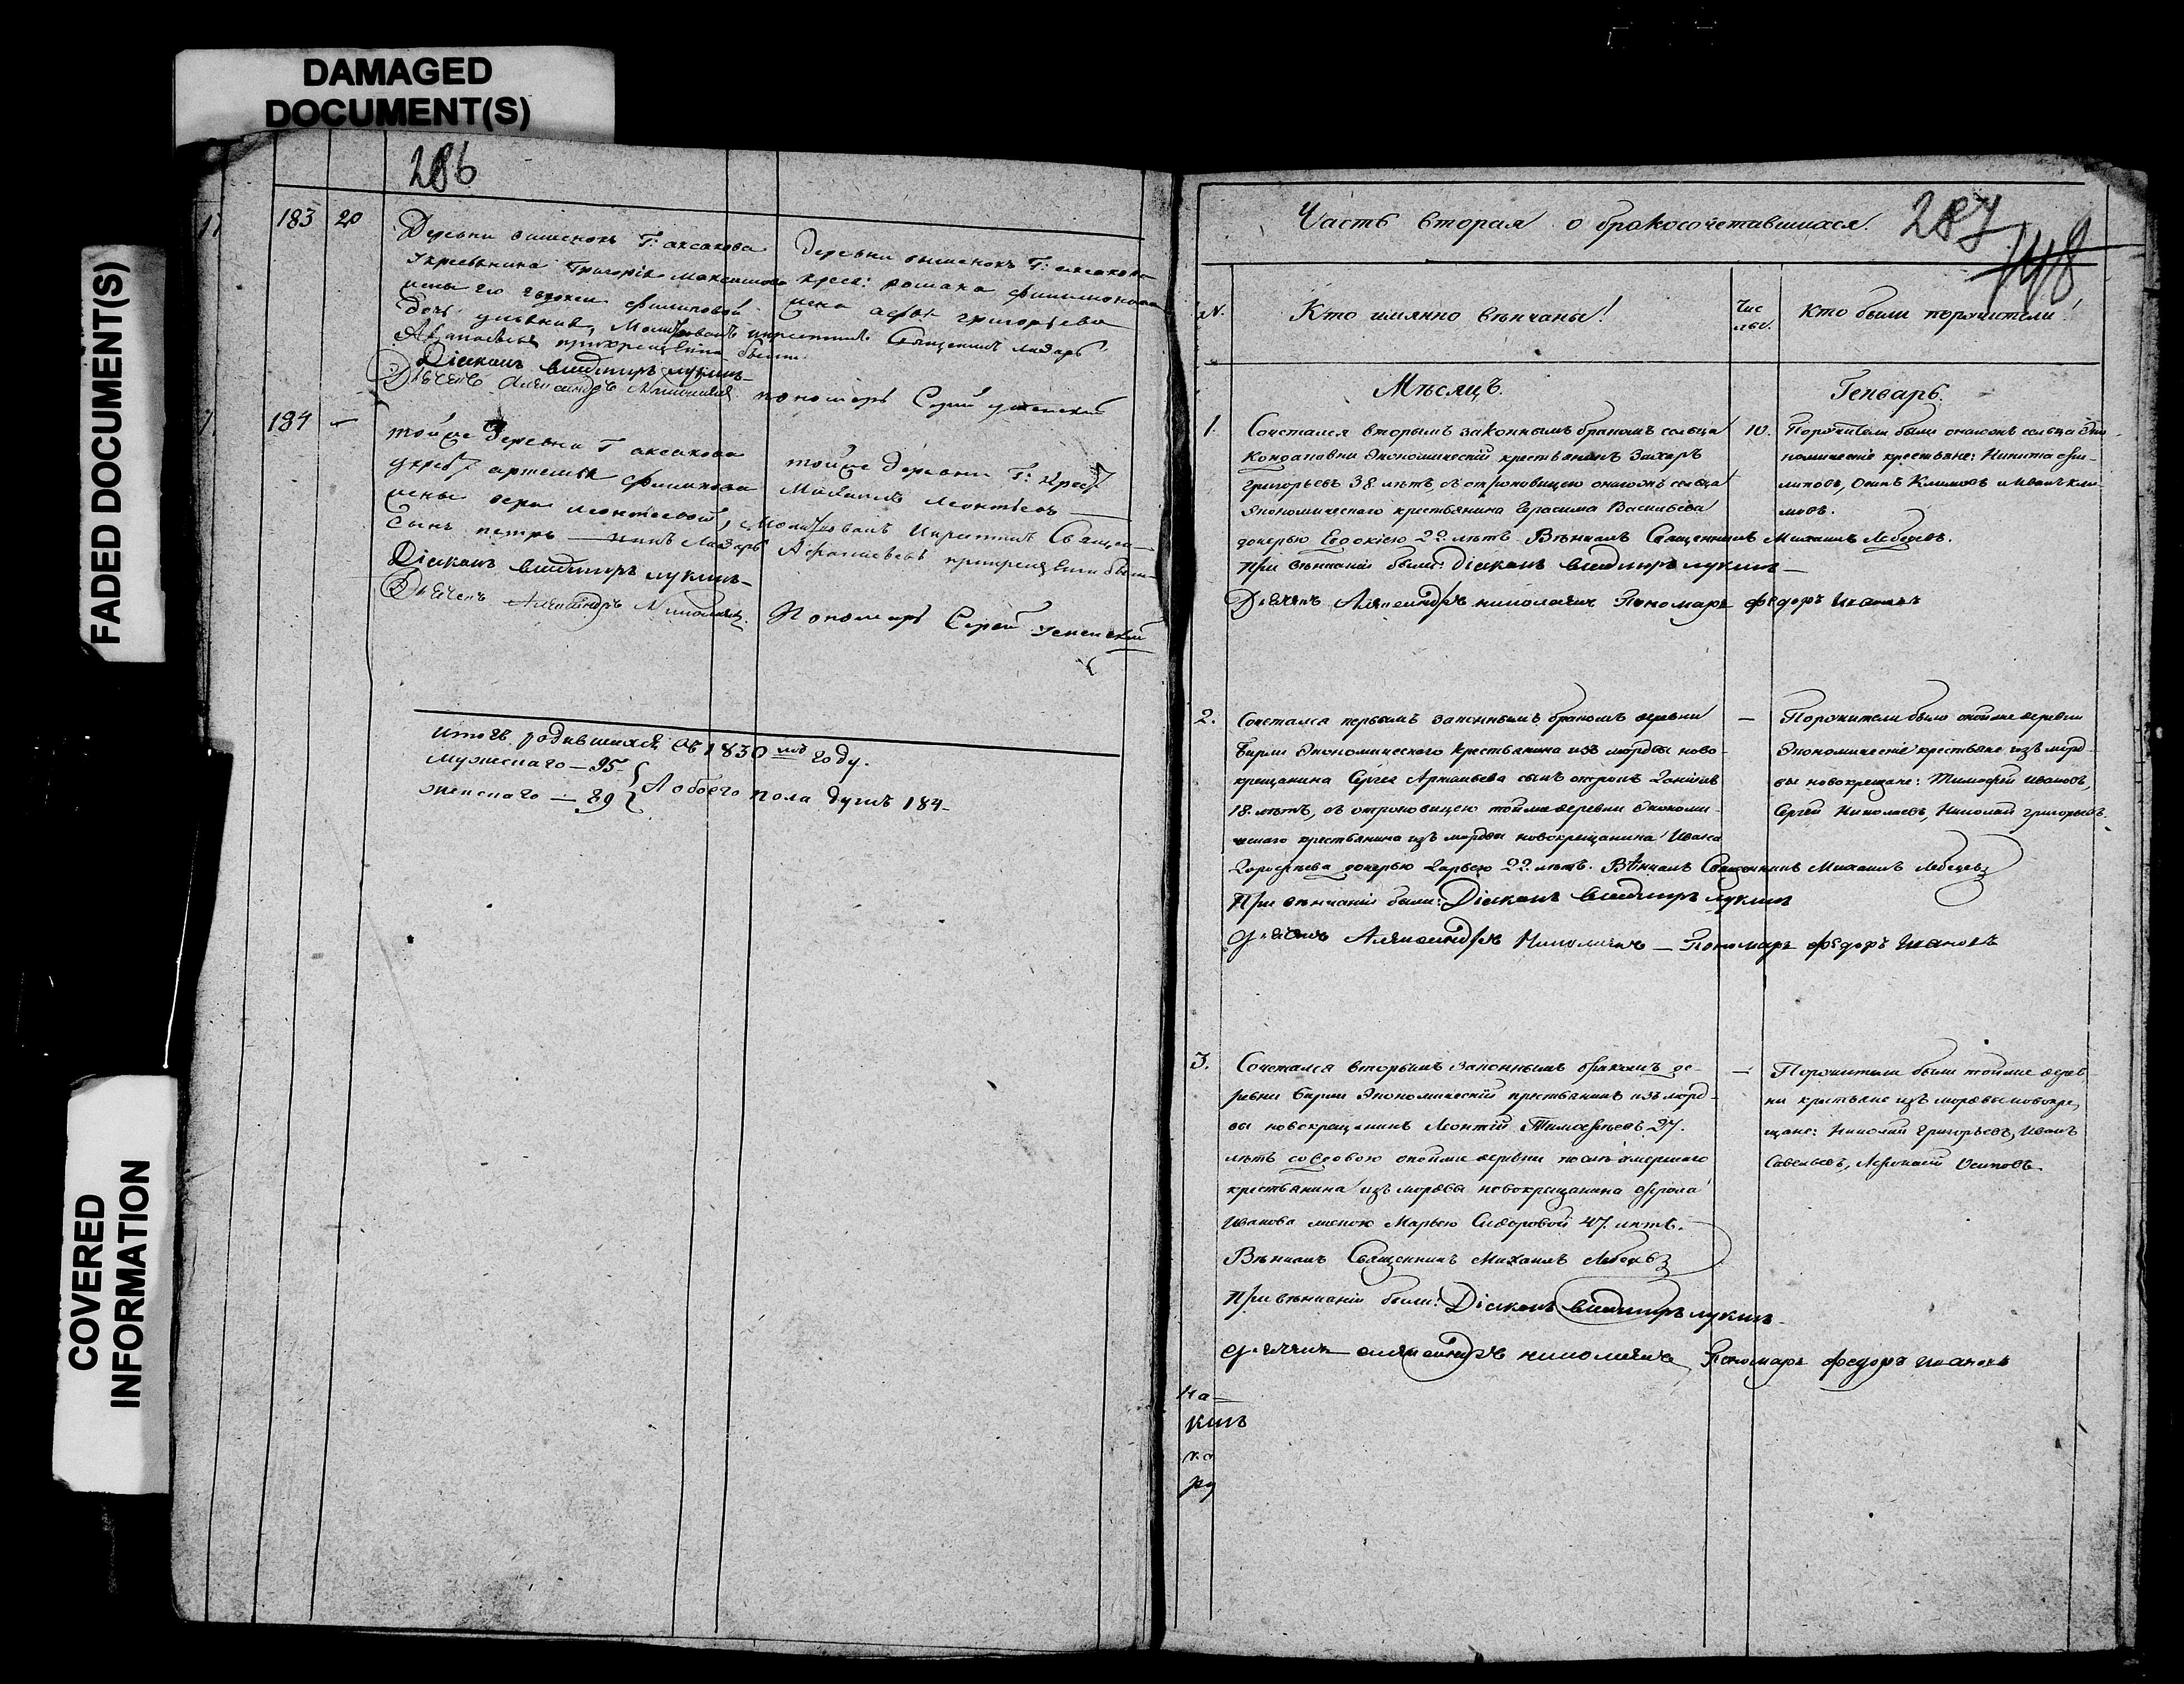 DAMAGED
DOCUMENT(S)
FADED DOCUMENT(S)
COVERED
INFORMATION
286
183 20
Деревни вишенокъ Г: аксакова
Укрестьянина Григорія максимова
жены его евдокеи филиповой
дочь ульянія, Молитвовалъ икрестилъ Священникъ лазарь
прикрещеніи были
Діаконъ владимиръ лукинъ
Дьячекъ Александръ Николаевъ
деревни вишенокъ Г: аксакова
крест: романа филимонова
жена григорьева
пономарь Сергій успенской
184 —
тойже деревни Г аксакова
укрест артемья филипова
жены веры леонтьевой, Молитвовалъ Икрестилъ Священ
Сынъ петръ — никъ Лазарь Афанасьевъ прикрещеніи были
Діаконъ владимиръ лукинъ
Дьячекъ Александръ Николаевъ
тойже деревни Г: крест
Михаилъ леонтьевъ
Пономарь Сергей Успенской
Итогъ родившихся въ 1830мъ году.
мужескаго — 95
женскаго — 89
А обоего пола душъ 184
Часть вторая о бракосочетавшихся. 287
148
№. Кто имянно венчаны! Чис
лы. Кто были поручители!
Месяцъ. Генварь.
1. Сочетался вторымъ законнымъ бракомъ сельца
экономическій крестьянинъ Захаръ
григорьевъ 38. летъ, съ отроковицею онагожъ сельца
экономическаго крестьянина Герасима Васильева
дочерью Евдокіею 22. летъ. Венчалъ Священникъ Михаилъ Лебедевъ.
При венчаніи были: Діаконъ владимиръ лукинъ
Дьячекъ Александръ николаевъ Пономарь федоръ Ивановъ
10. Поручители были онагожъ сельца эко
номическіе крестьяне: Никита фи
липовъ, Осипъ Климовъ и Иванъ Кли
мовъ.
2. Сочетался первымъ законнымъ бракомъ деревни
Бирли экономическаго крестьянина изъ мордвы ново
крещанина Сергея Артемьева сынъ отрокъ Даніилъ
18. летъ, съ отроковицею тойже деревни экономи
ческаго крестьянина изъ мордвы новокрещанина Ивана
Дорофеева дочерью Дарьею 22. летъ. Венчалъ Священникъ Михаилъ Лебедевъ
При венчаніи были: Діаконъ владимиръ лукинъ
Дьячекъ Александръ Николаевъ — Пономарь федоръ Ивановъ
— Поручители были тойже деревни
экономическіе крестьяне изъ морд
вы новокрещане: Тимофей Ивановъ,
Сергей Николаевъ, Николай григорьевъ.
3. Сочетался вторымъ законнымъ бракомъ де
ревни Бирли экономическій крестьянинъ изъ морд
вы новокрещанинъ Леонтій Тимофеевъ 27.
летъ со вдовою онойже деревни после умершаго
крестьянина изъ мордвы новокрещанина фрола
Иванова женою Марьею Сидоровой 47. летъ.
Венчалъ Священникъ Михаилъ Лебедевъ
При венчаніи были: Діаконъ владимиръ лукинъ
Дьячекъ александръ николаевъ Пономарь федоръ Ивановъ
— Поручители были тойже дерев
ни крестьяне изъ мордвы новокре
щане: Николай Григорьевъ, Иванъ
Савельевъ, Осиповъ.